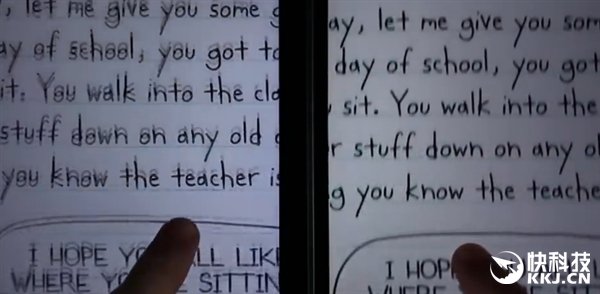 , let me give you some
ay of school, you got to
it. You walk into the
stuff down on any old
you know the teacher is
I HOPE ALL LIKE
WHERE SITTIN
ay, let me give you som
day of school, you got
sit. You walk into the
r stuff down on any ol
g you know the teache
I HOP
快科技
KKJ.CN